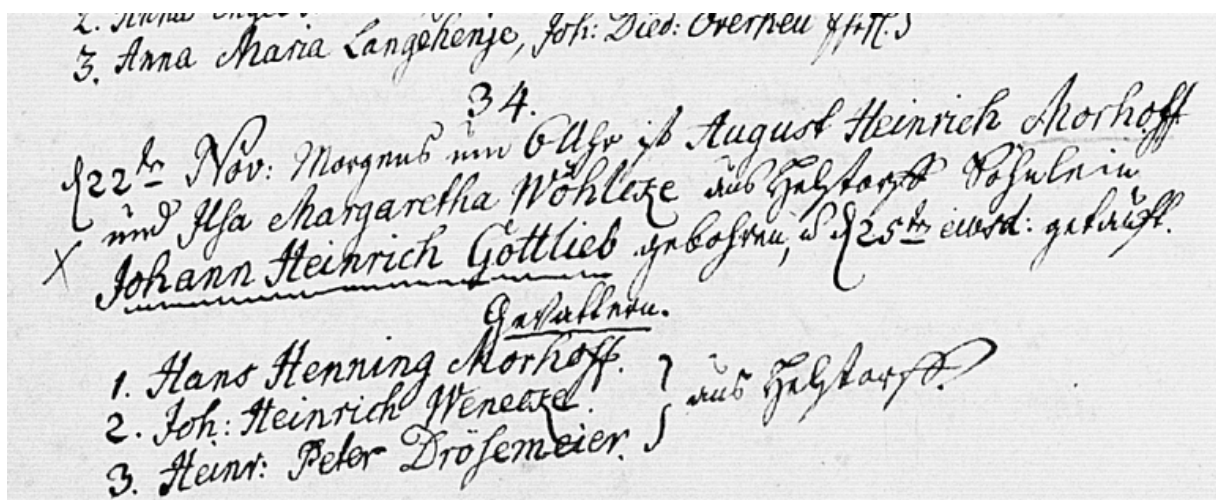 3. Anna Maria Langehenje, Joh: Died:
34.
d 22te Nov: Morgens um 6 Uhr ist August Heinrich Morhoff
und Ilsa Margaretha Wöhleke aus Helstorff Söhnlein
Johann Heinrich Gottlieb gebohren, u d 25te eiusd: getauft.
Gevattern.
1. Hans Henning Morhoff.
2. Joh: Heinrich } aus Helstorff.
3. Heinr: Peter Drösemeier.